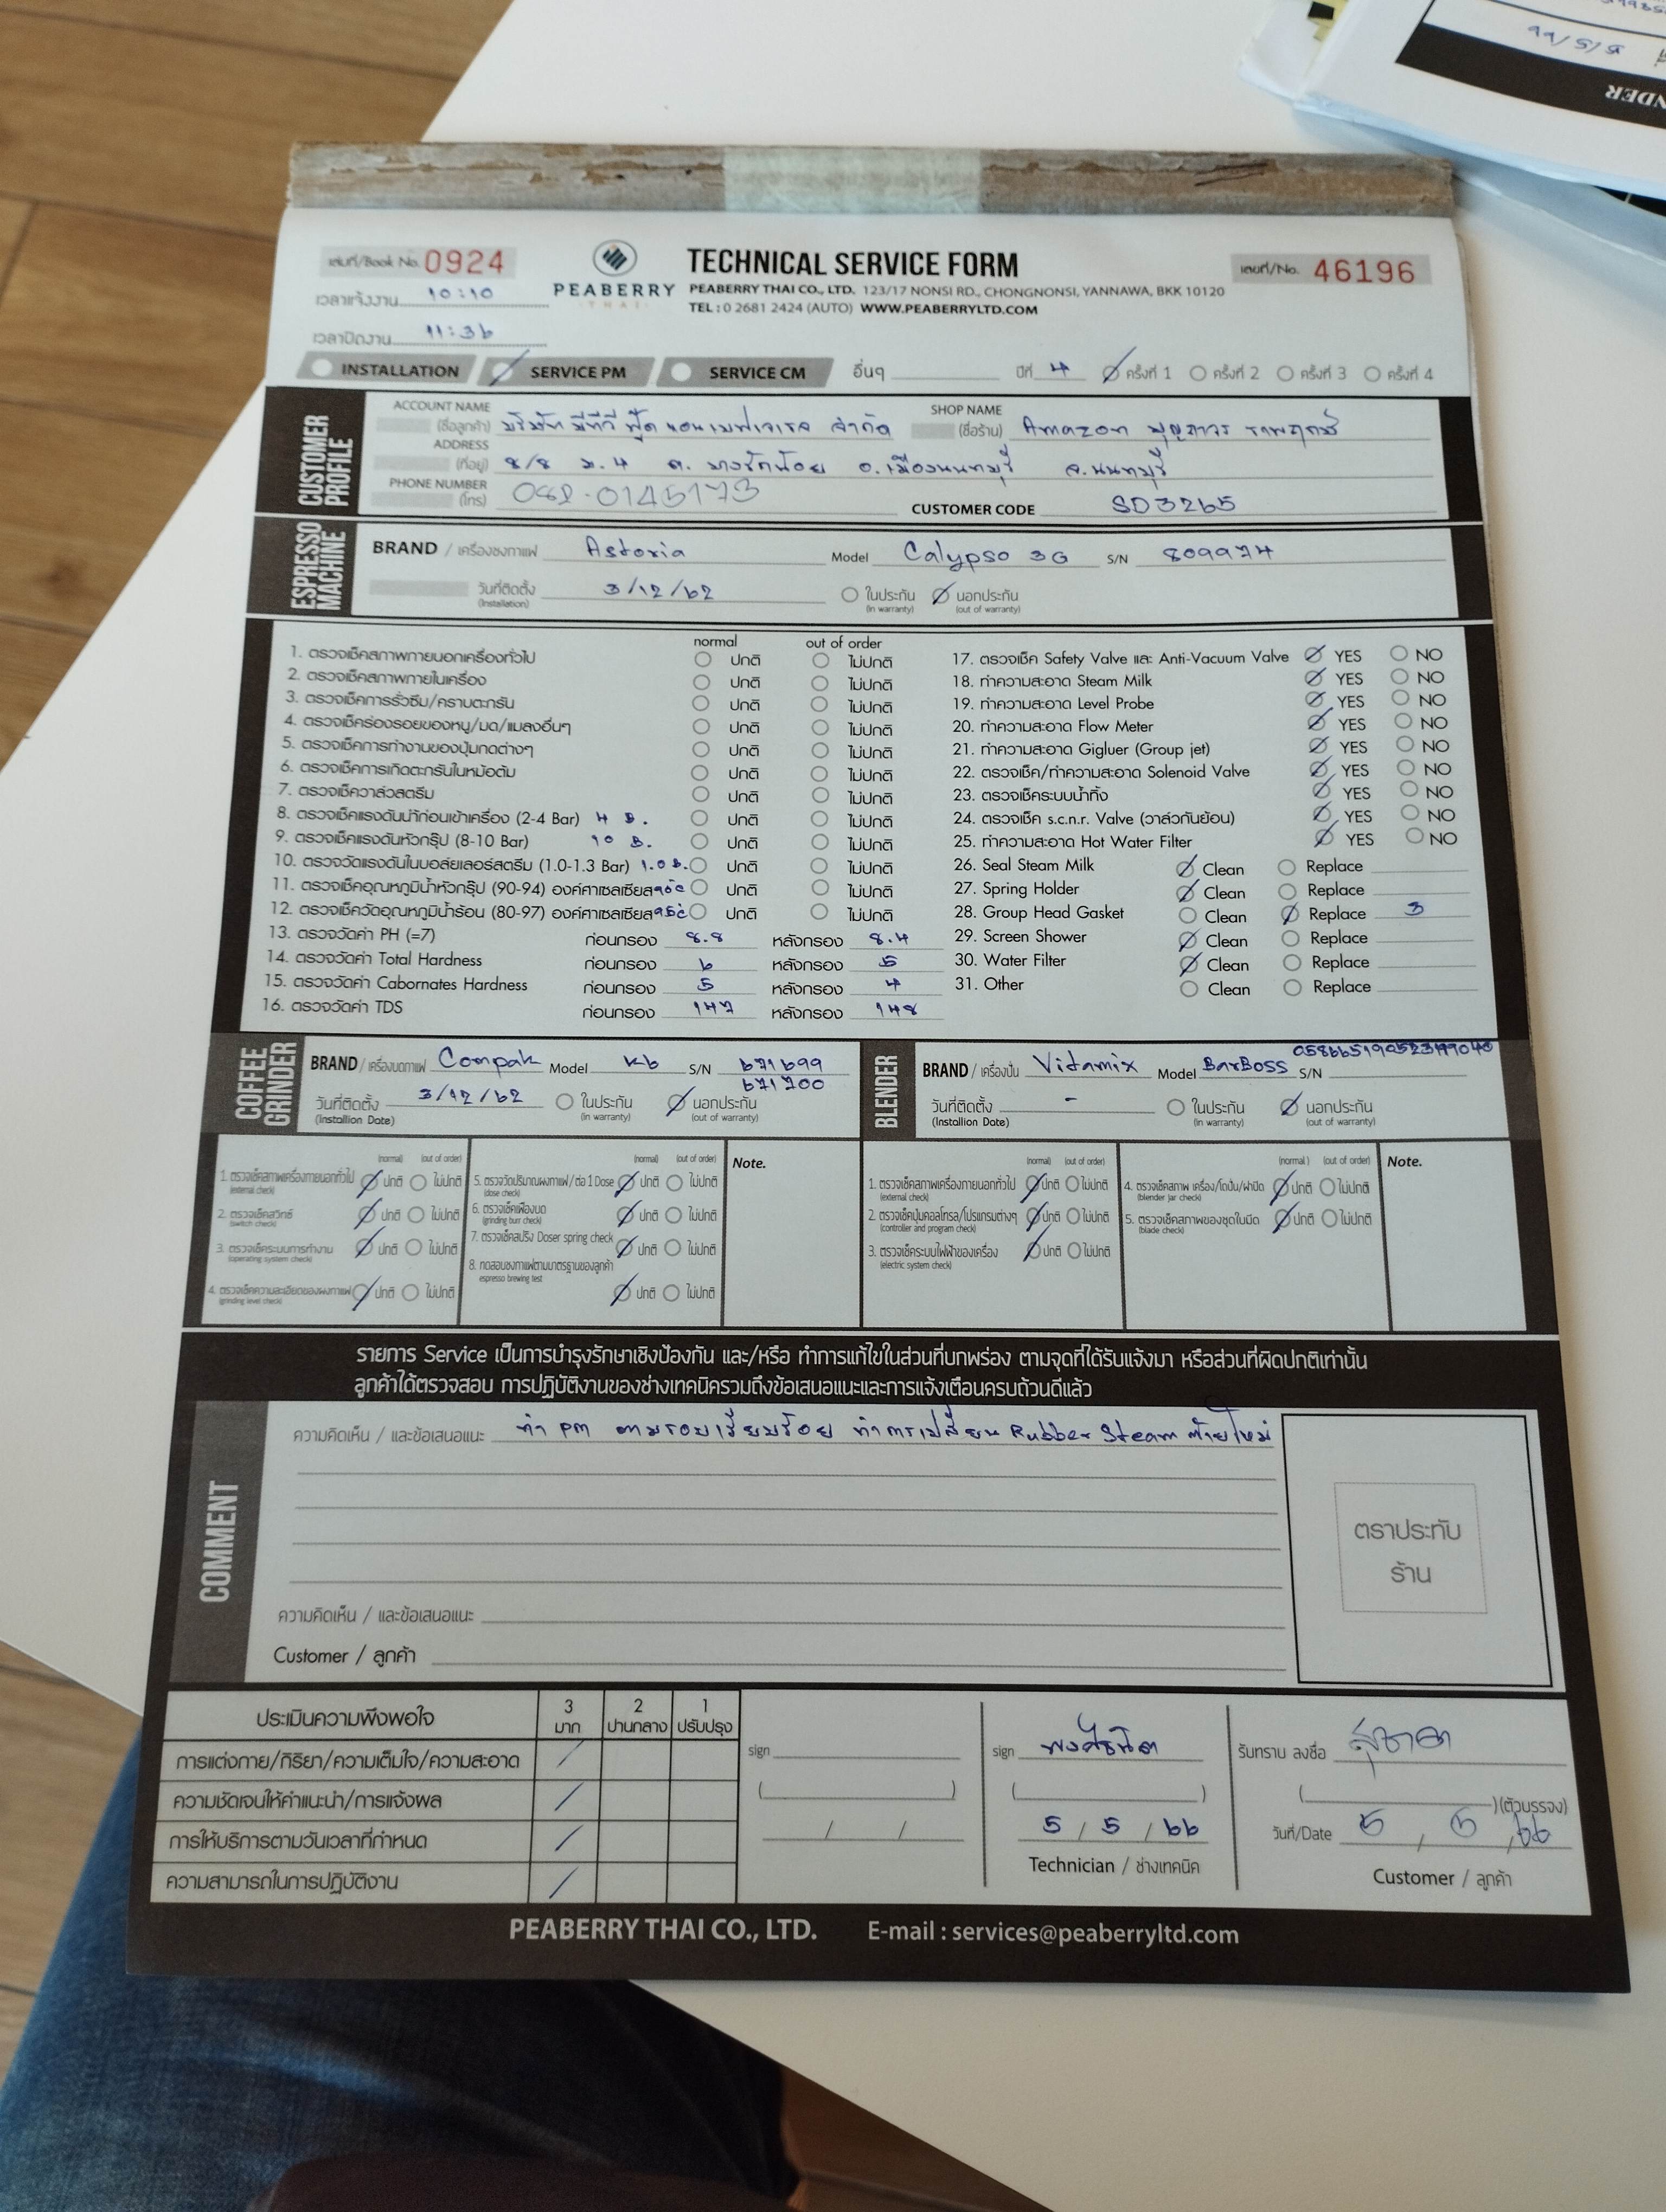 เล่มที่/Book No. 0924
TECHNICAL SERVICE FORM
เลขที่/No. 46196
เวลาแจ้งงาน 10:10
PEABERRY THAI
PEABERRY THAI CO., LTD. 123/17 NONSI RD., CHONGNONSI, YANNAWA, BKK 10120
TEL : 0 2681 2424 (AUTO) WWW.PEABERRYLTD.COM
เวลาปิดงาน 11:36
INSTALLATION SERVICE PM SERVICE CM อื่นๆ ปีที่ 4 ครั้งที่ 1 ครั้งที่ 2 ครั้งที่ 3 ครั้งที่ 4
CUSTOMER PROFILE
ACCOUNT NAME (ชื่อลูกค้า) บริษัท พีทีวี ฟู้ด แอนเมฟเจเรล จำกัด SHOP NAME (ชื่อร้าน) Amazon บุญถาวร ราชพฤกษ์
ADDRESS (ที่อยู่) 8/8 ม.4 ต. บางรักน้อย อ.เมืองนนทบุรี จ.นนทบุรี
PHONE NUMBER (โทร) 082-0145173 CUSTOMER CODE SD3265
ESPRESSO MACHINE
BRAND / เครื่องชงกาแฟ Astoria Model Calypso 3G S/N 809974
วันที่ติดตั้ง (Installation) 3/12/62 ในประกัน (in warranty) นอกประกัน (out of warranty)
normal out of order
1. ตรวจเช็คสภาพภายนอกเครื่องทั่วไป ปกติ ไม่ปกติ
2. ตรวจเช็คสภาพภายในเครื่อง ปกติ ไม่ปกติ
3. ตรวจเช็คการรั่วซึม/คราบตะกรัน ปกติ ไม่ปกติ
4. ตรวจเช็คร่องรอยของหนู/มด/แมลงอื่นๆ ปกติ ไม่ปกติ
5. ตรวจเช็คการทำงานของปุ่มกดต่างๆ ปกติ ไม่ปกติ
6. ตรวจเช็คการเกิดตะกรันในหม้อต้ม ปกติ ไม่ปกติ
7. ตรวจเช็ควาล์วสตรีม ปกติ ไม่ปกติ
8. ตรวจเช็คแรงดันน้ำก่อนเข้าเครื่อง (2-4 Bar) 4 B. ปกติ ไม่ปกติ
9. ตรวจเช็คแรงดันหัวกรุ๊ป (8-10 Bar) 10 B. ปกติ ไม่ปกติ
10. ตรวจวัดแรงดันในบอล์ยเลอร์สตรีม (1.0-1.3 Bar) 1.0 B. ปกติ ไม่ปกติ
11. ตรวจเช็คอุณหภูมิน้ำหัวกรุ๊ป (90-94) องศาเซลเซียส ปกติ ไม่ปกติ
12. ตรวจเช็ควัดอุณหภูมิน้ำร้อน (80-97) องศาเซลเซียส ปกติ ไม่ปกติ
13. ตรวจวัดค่า PH (=7) ก่อนกรอง 8.8 หลังกรอง 8.4
14. ตรวจวัดค่า Total Hardness ก่อนกรอง 6 หลังกรอง 5
15. ตรวจวัดค่า Cabornates Hardness ก่อนกรอง 5 หลังกรอง 4
16. ตรวจวัดค่า TDS ก่อนกรอง 147 หลังกรอง 148
17. ตรวจเช็ค Safety Valve และ Anti-Vacuum Valve YES NO
18. ทำความสะอาด Steam Milk YES NO
19. ทำความสะอาด Level Probe YES NO
20. ทำความสะอาด Flow Meter YES NO
21. ทำความสะอาด Gigluer (Group jet) YES NO
22. ตรวจเช็ค/ทำความสะอาด Solenoid Valve YES NO
23. ตรวจเช็คระบบน้ำทิ้ง YES NO
24. ตรวจเช็ค s.c.n.r. Valve (วาล์วกันย้อน) YES NO
25. ทำความสะอาด Hot Water Filter YES NO
26. Seal Steam Milk Clean Replace
27. Spring Holder Clean Replace
28. Group Head Gasket Clean Replace 3
29. Screen Shower Clean Replace
30. Water Filter Clean Replace
31. Other Clean Replace
COFFEE GRINDER
BRAND / เครื่องบดกาแฟ Compak Model K6 S/N 671699
671700
วันที่ติดตั้ง (Installion Date) 3/12/62 ในประกัน (in warranty) นอกประกัน (out of warranty)
BLENDER
BRAND / เครื่องปั่น Vitamix Model BarBoss S/N
วันที่ติดตั้ง (Installion Date) - ในประกัน (in warranty) นอกประกัน (out of warranty)
(normal) (out of order)
1. ตรวจเช็คสภาพเครื่องภายนอกทั่วไป (external check) ปกติ ไม่ปกติ
2. ตรวจเช็คสวิทซ์ (switch check) ปกติ ไม่ปกติ
3. ตรวจเช็คระบบการทำงาน (operating system check) ปกติ ไม่ปกติ
4. ตรวจเช็คความละเอียดของผงกาแฟ (grinding level check) ปกติ ไม่ปกติ
(normal) (out of order)
5. ตรวจวัดปริมาณผงกาแฟ/ต่อ 1 Dose (dose check) ปกติ ไม่ปกติ
6. ตรวจเช็คเฟืองบด (grinding burr check) ปกติ ไม่ปกติ
7. ตรวจเช็คสปริง Doser spring check ปกติ ไม่ปกติ
8. ทดสอบชงกาแฟตามมาตรฐานของลูกค้า espresso brewing test ปกติ ไม่ปกติ
Note.
(normal) (out of order)
1. ตรวจเช็คสภาพเครื่องภายนอกทั่วไป (external check) ปกติ ไม่ปกติ
2. ตรวจเช็คปุ่มคอลโทรล/โปรแกรมต่างๆ (controller and program check) ปกติ ไม่ปกติ
3. ตรวจเช็คระบบไฟฟ้าของเครื่อง (electric system check) ปกติ ไม่ปกติ
(normal) (out of order)
4. ตรวจเช็คสภาพ เครื่อง/โถปั่น/ฝาปิด (blender jar check) ปกติ ไม่ปกติ
5. ตรวจเช็คสภาพของชุดใบมีด (blade check) ปกติ ไม่ปกติ
Note.
รายการ Service เป็นการบำรุงรักษาเชิงป้องกัน และ/หรือ ทำการแก้ไขในส่วนที่บกพร่อง ตามจุดที่ได้รับแจ้งมา หรือส่วนที่ผิดปกติเท่านั้น
ลูกค้าได้ตรวจสอบ การปฏิบัติงานของช่างเทคนิครวมถึงข้อเสนอแนะและการแจ้งเตือนครบถ้วนดีแล้ว
COMMENT
ความคิดเห็น / และข้อเสนอแนะ ทำ PM ตามรอบเรียบร้อย ทำการเปลี่ยน Rubber Steam ซ้ายใหม่
ตราประทับ
ร้าน
ความคิดเห็น / และข้อเสนอแนะ
Customer / ลูกค้า
ประเมินความพึงพอใจ 3 มาก 2 ปานกลาง 1 ปรับปรุง
การแต่งกาย/กิริยา/ความเต็มใจ/ความสะอาด
ความชัดเจนให้คำแนะนำ/การแจ้งผล
การให้บริการตามวันเวลาที่กำหนด
ความสามารถในการปฏิบัติงาน
sign
sign
5 / 5 / 66
Technician / ช่างเทคนิค
รับทราบ ลงชื่อ สุชาดา
(ตัวบรรจง)
วันที่/Date 5 , 5 , 66
Customer / ลูกค้า
PEABERRY THAI CO., LTD. E-mail : services@peaberryltd.com